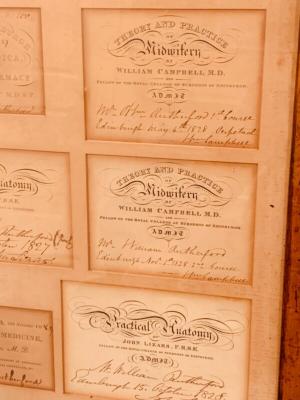 THEORY AND PRACTICE
OF
Midwifery
BY
WILLIAM CAMPBELL M.D.
AND
FELLOW OF THE ROYAL COLLEGE OF SURGEONS OF EDINBURGH.
ADMIT
Rutherford 1st Course
Edinburgh May 6th 1828 Perpetual
Wm Campbell
THEORY AND PRACTICE
OF
Midwifery
BY
WILLIAM CAMPBELL M.D.
AND
FELLOW OF THE ROYAL COLLEGE OF SURGEONS OF EDINBURGH.
ADMIT
Mr William Rutherford
Edinburgh Novr 1828 2nd Course
Wm Campbell
Practical Anatomy
BY
JOHN LIZARS, F.R.S.E.
FELLOW OF THE ROYAL COLLEGE OF SURGEONS OF EDINBURGH,
ADMIT
Mr William Rutherford
Edinburgh 15 October 1828
OF
MACY
natomy,
F.R.S.E.
Rutherford
1827
MEDICINE,
M.D.
Rutherford